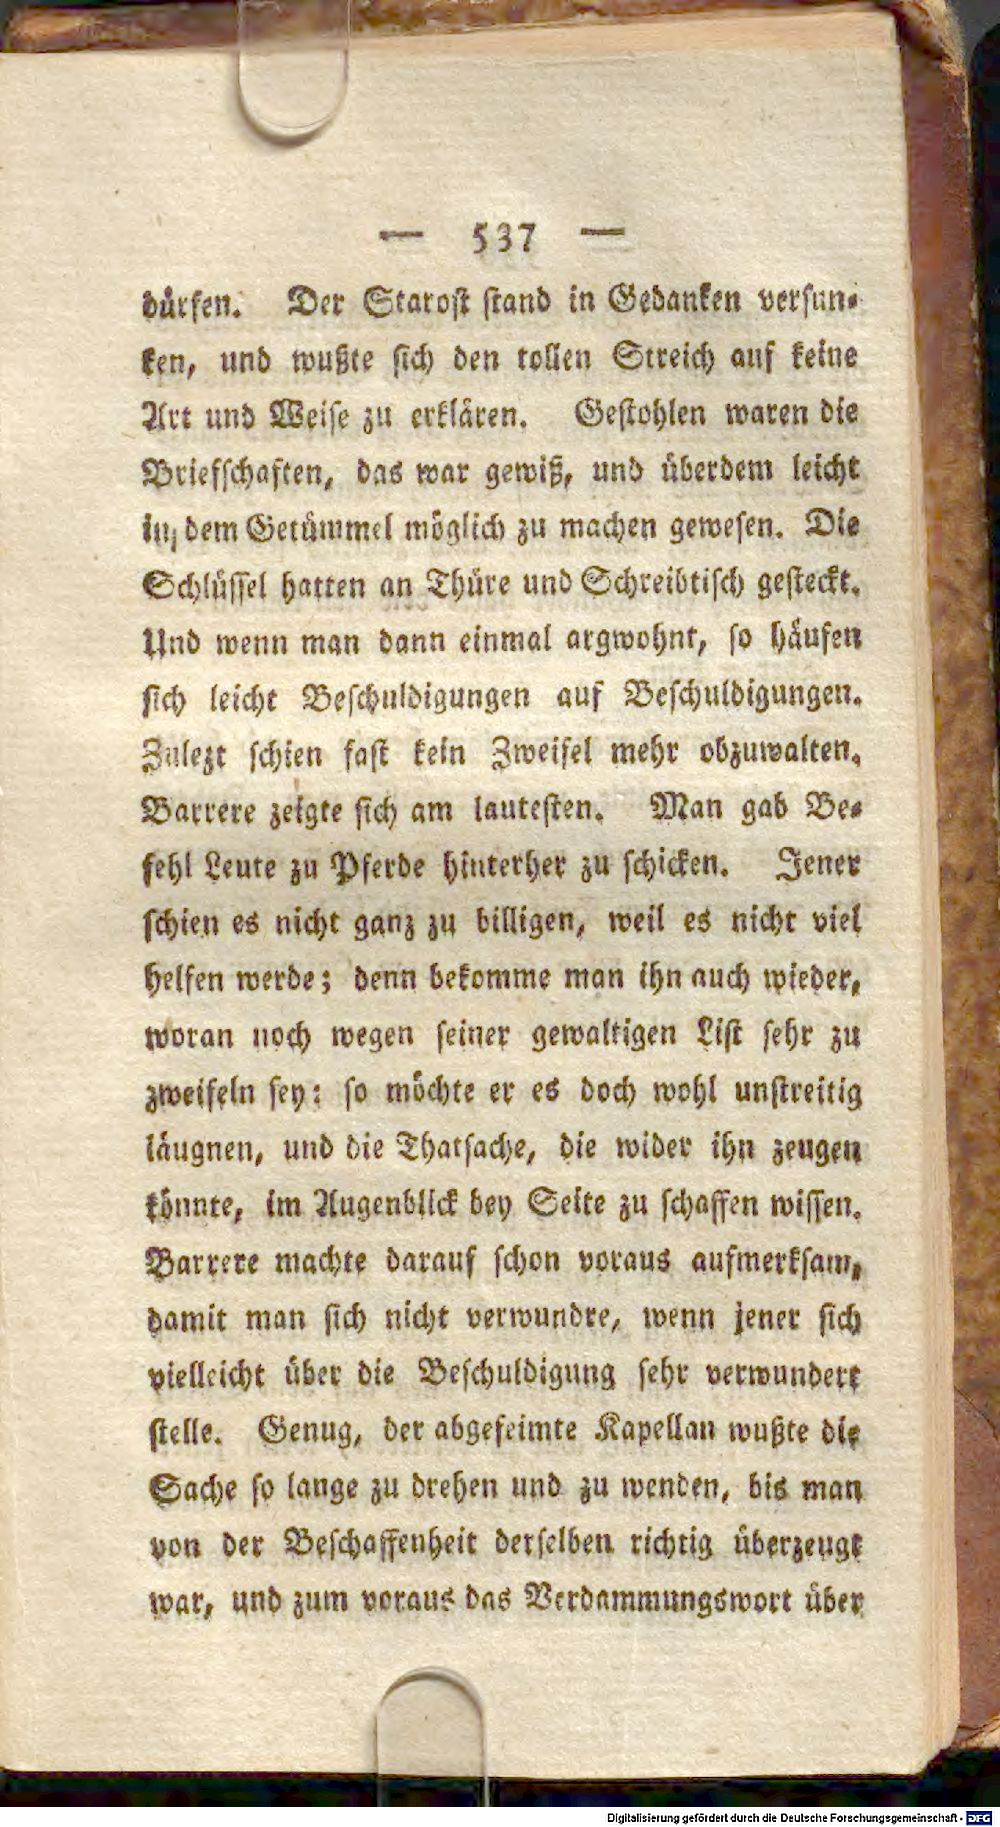 — 537 —
dürfen. Der Starost stand in Gedanken versun-
ken, und wußte sich den tollen Streich auf keine
Art und Weise zu erklären. Gestohlen waren die
Briefschaften, das war gewiß, und überdem leicht
in dem Getümmel möglich zu machen gewesen. Die
Schlüssel hatten an Thüre und Schreibtisch gesteckt.
Und wenn man dann einmal argwohnt, so häufen
sich leicht Beschuldigungen auf Beschuldigungen.
Zulezt schien fast kein Zweifel mehr obzuwalten.
Barrere zeigte sich am lautesten. Man gab Be-
fehl Leute zu Pferde hinterher zu schicken. Jener
schien es nicht ganz zu billigen, weil es nicht viel
helfen werde; denn bekomme man ihn auch wieder,
woran noch wegen seiner gewaltigen List sehr zu
zweifeln sey: so möchte er es doch wohl unstreitig
läugnen, und die Thatsache, die wider ihn zeugen
könnte, im Augenblick bey Seite zu schaffen wissen.
Barrere machte darauf schon voraus aufmerksam,
damit man sich nicht verwundre, wenn jener sich
vielleicht über die Beschuldigung sehr verwundert
stelle. Genug, der abgefeimte Kapellan wußte die
Sache so lange zu drehen und zu wenden, bis man
von der Beschaffenheit derselben richtig überzeugt
war, und zum voraus das Verdammungswort über
Digitalisierung gefördert durch die Deutsche Forschungsgemeinschaft - DFG